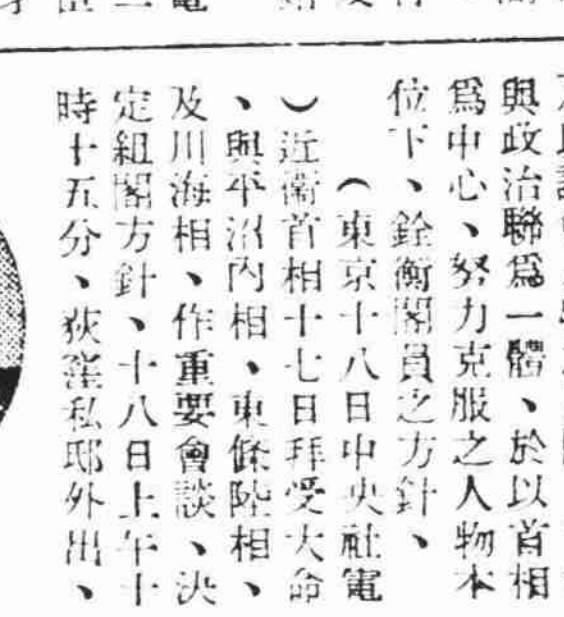 與政治聯爲一體、於以首相
爲中心、努力克服之人物本
位下、銓衡閣員之方針、
（東京十八日中央社電
）近衞首相十七日拜受大命
、與平沼內相、東條陸相、
及川海相、作重要會談、決
定組閣方針、十八日上午十
時十五分、荻窪私邸外出、